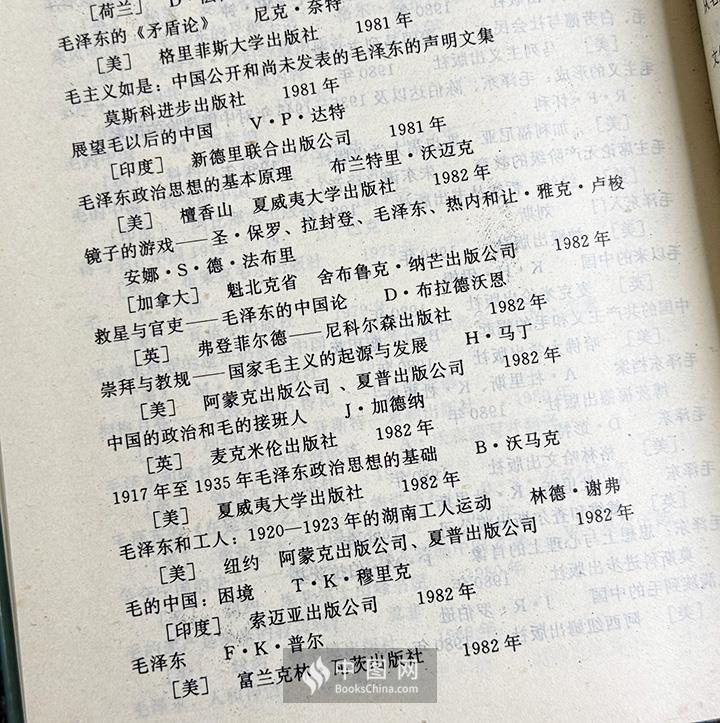 [荷兰] D·
毛泽东的《矛盾论》 尼克·奈特
[美] 格里菲斯大学出版社 1981年
毛主义如是：中国公开和尚未发表的毛泽东的声明文集
莫斯科进步出版社 1981年
展望毛以后的中国 V·P·达特
[印度] 新德里联合出版公司 1981年
毛泽东政治思想的基本原理 布兰特里·沃迈克
[美] 檀香山 夏威夷大学出版社 1982年
镜子的游戏——圣·保罗、拉封登、毛泽东、热内和让·雅克·卢梭
安娜·S·德·法布里
[加拿大] 魁北克省 舍布鲁克·纳芒出版公司 1982年
救星与官吏——毛泽东的中国论 D·布拉德沃恩
[英] 弗登菲尔德——尼科尔森出版社 1982年
崇拜与教规——国家毛主义的起源与发展 H·马丁
[美] 阿蒙克出版公司、夏普出版公司 1982年
中国的政治和毛的接班人 J·加德纳
[英] 麦克米伦出版社 1982年
1917年至1935年毛泽东政治思想的基础 B·沃马克
[美] 夏威夷大学出版社 1982年
毛泽东和工人：1920—1923年的湖南工人运动 林德·谢弗
[美] 纽约 阿蒙克出版公司、夏普出版公司 1982年
毛的中国：困境 T·K·穆里克
[印度] 索迈亚出版公司 1982年
毛泽东 F·K·普尔
[美] 富兰克林 瓦茨出版社 1982年
中图网
BooksChina.com